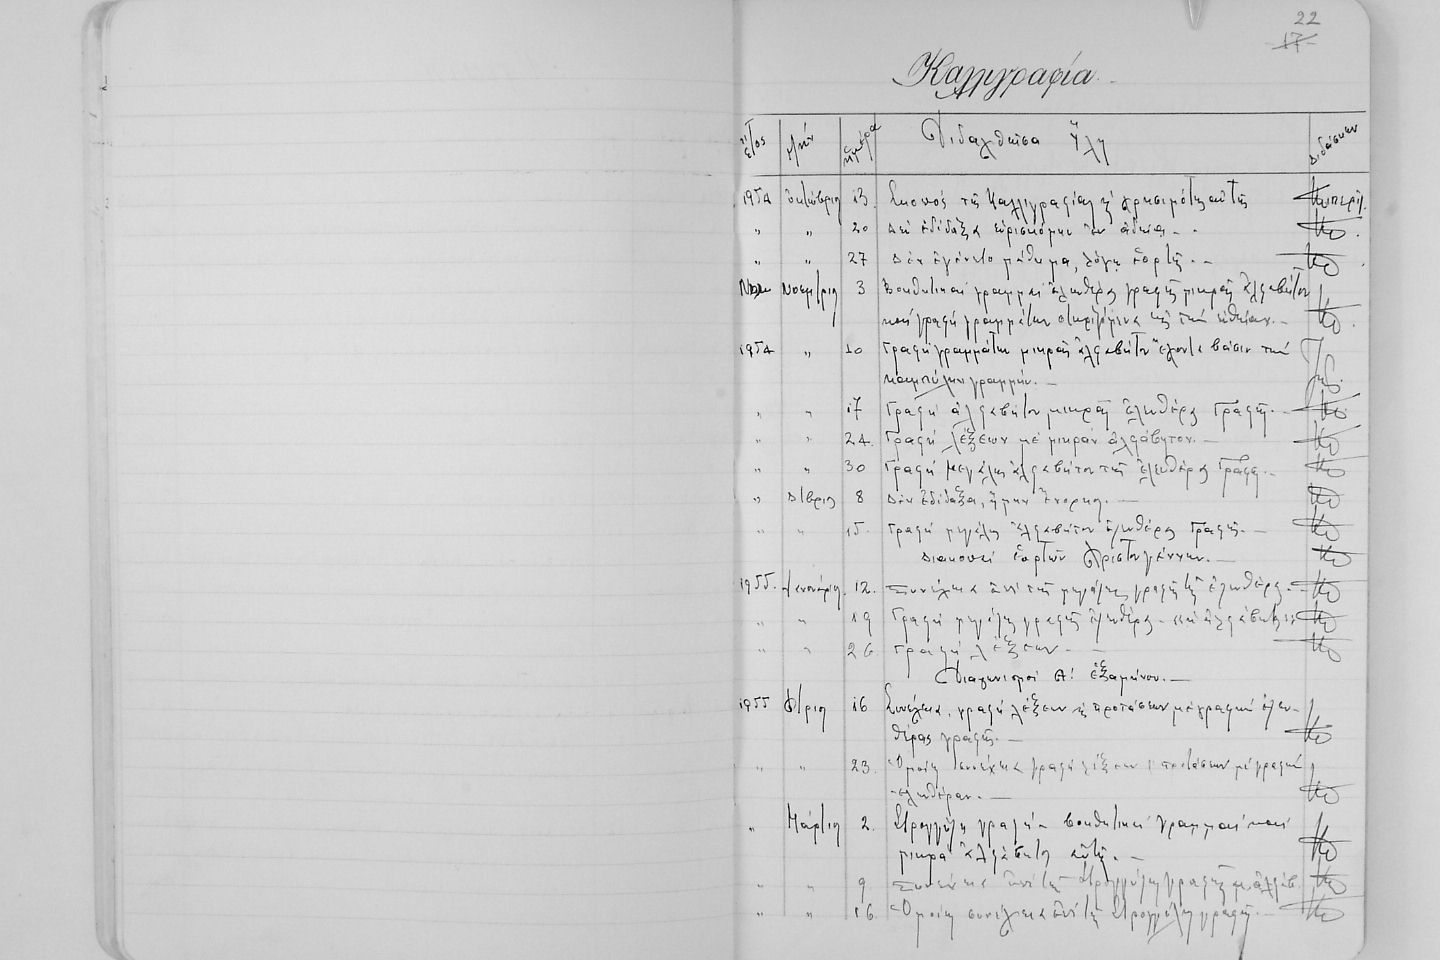 22
17
Καλλιγραφία
Ἔτος Μήν Ἡμέρα Διδαχθεῖσα ὕλη Διδάσκων
1954 Ὀκτώβριος 13. Σκοπός τῆς Καλλιγραφίας ἡ χρησιμότης αὐτῆς
„ „ 20 Δέν ἐδίδαξα εὑρισκόμην ἐν ἀδείᾳ.
„ „ 27 Δέν ἐγένετο μάθημα, λόγῳ ἑορτῆς.
Νοέμβριος 3 Βοηθητικαί γραμμαί ἐλευθέρας γραφῆς μικροῦ ἀλφαβήτου
καί γραφή γραμμάτων στηριζόμενα εἰς τήν εὐθεῖαν.
1954 „ 10 Γραφή γραμμάτων μικροῦ ἀλφαβήτου ἔχοντα βάσιν τήν
καμπύλην γραμμήν.
„ „ 17 Γραφή ἀλφαβήτου μικροῦ ἐλευθέρας Γραφῆς.
„ „ 24. Γραφή λέξεων μέ μικρόν ἀλφάβητον.
„ „ 30 Γραφή μεγάλου ἀλφαβήτου τῆς ἐλευθέρας Γραφῆς.
„ Δ/βριος 8 Δέν ἐδίδαξα, ἤμην ἔνορκος.
„ „ 15. Γραφή μεγάλου ἀλφαβήτου ἐλευθέρας Γραφῆς.
Διακοπαί ἑορτῶν Χριστουγέννων.
1955. Ἰανουάριος 12. Συνέχεια ἐπί τῆς μεγάλης γραφῆς τῆς ἐλευθέρας.
„ „ 19 Γραφή μεγάλης γραφῆς ἐλευθέρας
„ „ 26. Γραφή λέξεων.
Διαγωνισμοί Α! ἑξαμήνου.
1955 Φ/ριος 16 Συνέχεια, γραφή λέξεων ἡ προτάσεων μέ γραφήν ἐλευ-
θέρας γραφῆς.
„ „ 23. Ὁμοίως συνέχεια γραφή λέξεων ἡ προτάσεων μέ γραφήν
ἐλευθέραν.
„ Μάρτιος 2. Στρογγύλη γραφή – βοηθητικαί γραμμαί καί
μικρό ἀλφάβητο αὐτῆς.
„ „ 9. Συνέχεια ἐπί τῆς στρογγύλης γραφῆς
„ „ 16. Ὁμοίως συνέχεια ἐπί τῆς Στρογγύλης γραφῆς.